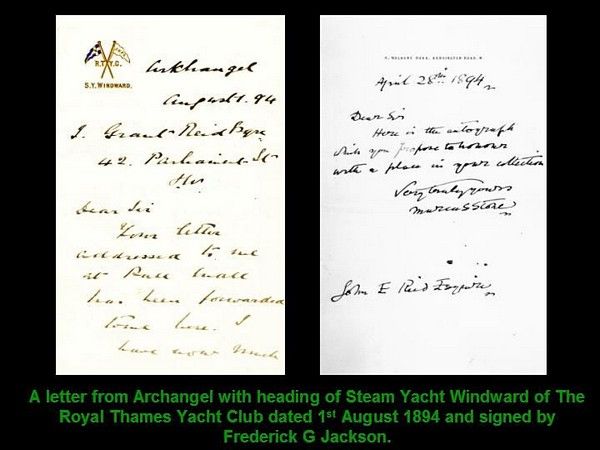 R.T.Y.C.
S.Y. WINDWARD.
Arkhangel
August 1. 94
J. Grant Reid Esqre
42. Parliament St
Dear Sir
Your letter
addressed to me
at Pall Mall
has been forwarded
to me here. I
have now much
April 28th 1894
Dear Sir
Here is the autograph
which you propose to honour
with a place in your collection
Very truly yours
Marcus Stone
John E Reid Esquire
A letter from Archangel with heading of Steam Yacht Windward of The
Royal Thames Yacht Club dated 1st August 1894 and signed by
Frederick G Jackson.